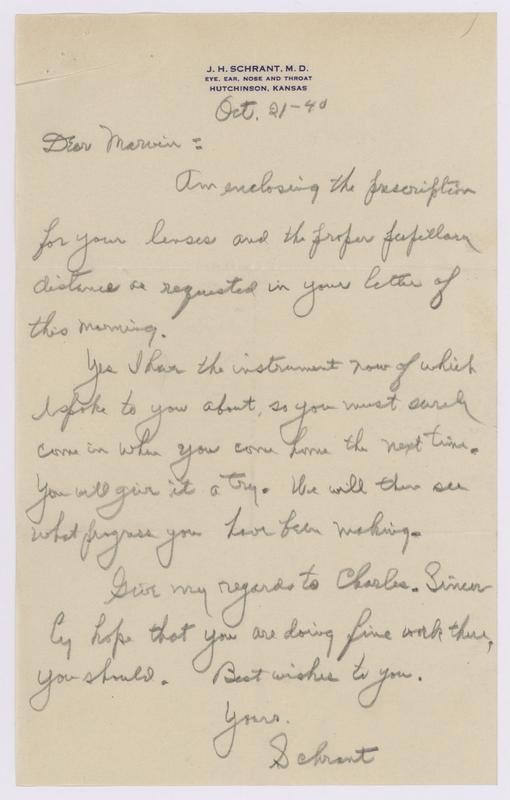 J. H. SCHRANT, M. D.
EYE, EAR, NOSE AND THROAT
HUTCHINSON, KANSAS
Oct. 21-40
Dear Marvin:
Am enclosing the prescription
for your lenses and the proper pupillary
distance as requested in your letter of
this morning.
Yes I have the instrument now of which
I spoke to you about, so you must surely
come in when you come home the next time.
You will give it a try. We will then see
what progress you have been making.
Give my regards to Charles. Sincer
ly hope that you are doing fine work there,
you should. Best wishes to you.
Yours.
Schrant